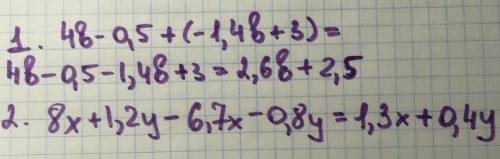 1. 4в - 0,5 + (-1,4в + 3) =
4в - 0,5 - 1,4в + 3 = 2,6в + 2,5
2. 8x + 1,2y - 6,7x - 0,8y = 1,3x + 0,4y